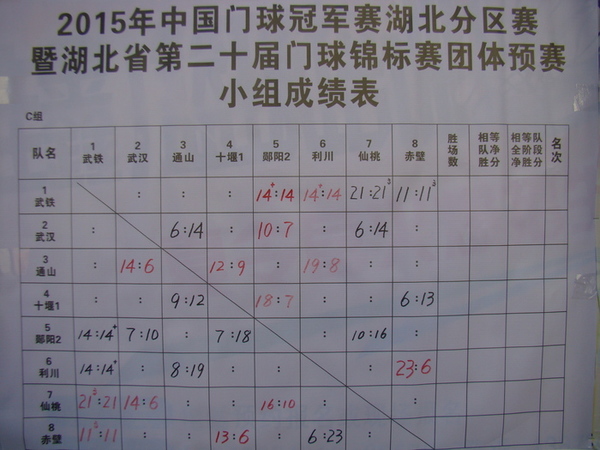 2015年中国门球冠军赛湖北分区赛
暨湖北省第二十届门球锦标赛团体预赛
小组成绩表
C组
队名 1 武铁 2 武汉 3 通山 4 十堰1 5 郧阳2 6 利川 7 仙桃 8 赤壁 胜场数 相等队净胜分 相等队全阶段净胜分 名次
1 武铁 : : : 14+:14 14+:14 21:21³ 11:11³
2 武汉 : 6:14 : 10:7 : 6:14 :
3 通山 : 14:6 12:9 : 19:8 : :
4 十堰1 : : 9:12 18:7 : : 6:13
5 郧阳2 14:14+ 7:10 : 7:18 : 10:16 :
6 利川 14:14+ : 8:19 : : : 23:6
7 仙桃 21³:21 14:6 : : 16:10 : :
8 赤壁 11³:11 : : 13:6 : 6:23 :